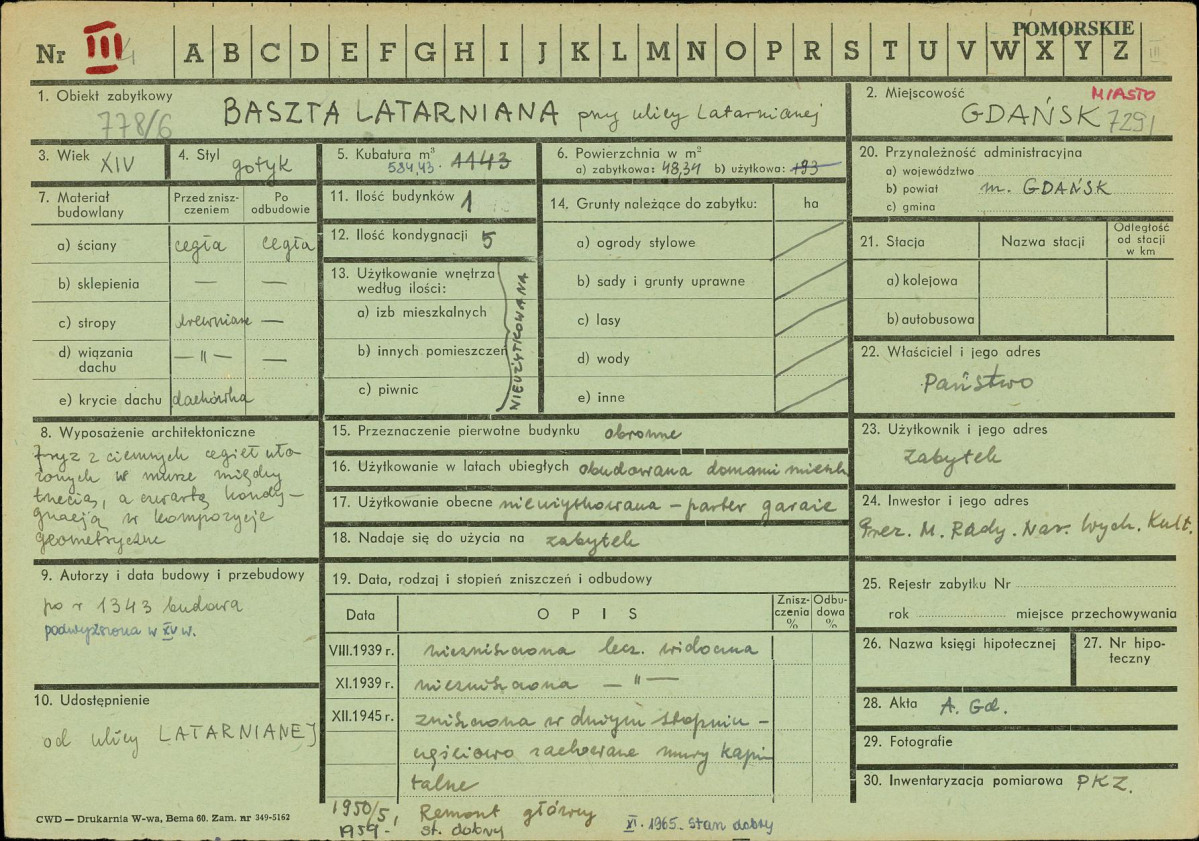 POMORSKIE
Nr III A B C D E F G H I J K L M N O P R S T U V W X Y Z III
1. Obiekt zabytkowy
778/6 BASZTA LATARNIANA przy ulicy Latarnianej
2. Miejscowość MIASTO
GDAŃSK 7291
3. Wiek XIV
4. Styl gotyk
5. Kubatura m³ 1143
584,43
6. Powierzchnia w m²
a) zabytkowa: 48,34 b) użytkowa: 193
7. Materiał budowlany
Przed zniszczeniem
Po odbudowie
a) ściany cegła cegła
b) sklepienia — —
c) stropy drewniane —
d) wiązania dachu — " — —
e) krycie dachu dachówka
8. Wyposażenie architektoniczne
Fryz z ciemnych cegieł uło-
żonych w murze między
trzecią, a czwartą kondy-
gnacją w kompozycje
geometryczne
9. Autorzy i data budowy i przebudowy
po r 1343 budowa
podwyższona w XV w.
10. Udostępnienie
od ulicy LATARNIANEJ
11. Ilość budynków 1
12. Ilość kondygnacji 5
13. Użytkowanie wnętrza
według ilości:
a) izb mieszkalnych
b) innych pomieszczeń
c) piwnic
NIEUŻYTKOWANA
14. Grunty należące do zabytku: ha
a) ogrody stylowe
b) sady i grunty uprawne
c) lasy
d) wody
e) inne
15. Przeznaczenie pierwotne budynku obronne
16. Użytkowanie w latach ubiegłych obudowana domami mieszk
17. Użytkowanie obecne nieużytkowana – parter garaże
18. Nadaje się do użycia na zabytek
19. Data, rodzaj i stopień zniszczeń i odbudowy
Data OPIS Zniszczenia % Odbudowa %
VIII.1939 r. niezniszczona lecz widoczna
XI.1939 r. niezniszczona — " —
XII.1945 r. zniszczona w dużym stopniu –
częściowo zachowane mury kapi
talne
1950/51 Remont główny
1959 - st. dobry
XI. 1965. Stan dobry
20. Przynależność administracyjna
a) województwo
b) powiat m. GDAŃSK
c) gmina
21. Stacja Nazwa stacji Odległość od stacji w km
a) kolejowa
b) autobusowa
22. Właściciel i jego adres
Państwo
23. Użytkownik i jego adres
Zabytek
24. Inwestor i jego adres
Prez. M. Rady. Nar. Wydz. Kult.
25. Rejestr zabytku Nr
rok miejsce przechowywania
26. Nazwa księgi hipotecznej
27. Nr hipoteczny
28. Akta A. Gd.
29. Fotografie
30. Inwentaryzacja pomiarowa PKZ.
CWD — Drukarnia W-wa, Bema 60. Zam. nr 349-5162